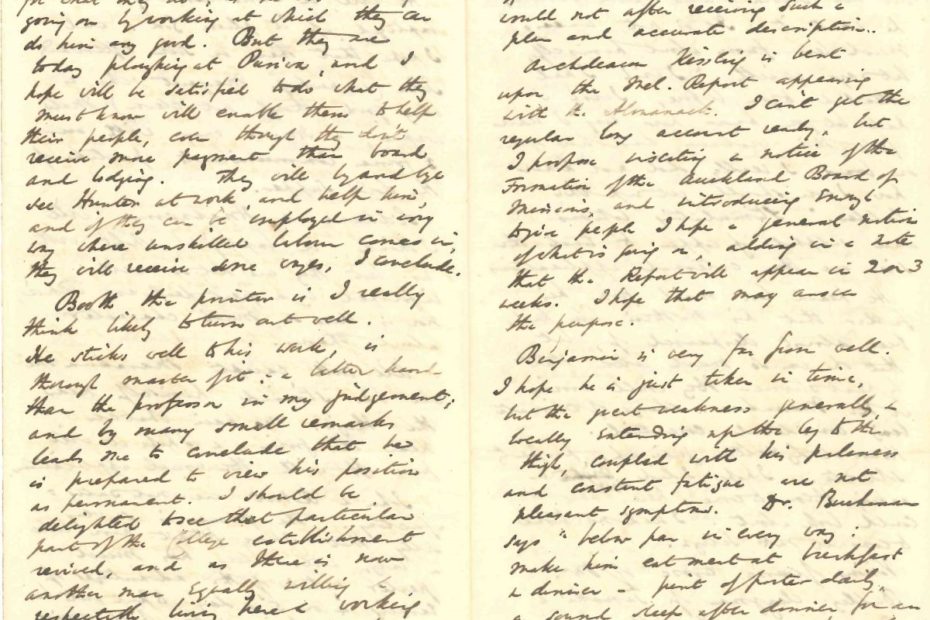 going on by working at which they can
do him any good. But they are
today ploughing at Purewa, and I
hope will be satisfied to do what they
must know will enable them to help
their people, even though they don't
receive more payment than board
and lodging. They will by and bye
see Hunter at work, and help him,
and if they can be employed in any
way where unskilled labour comes in,
they will receive some wages, I conclude.
Booth the printer is I really
think likely to turn out well.
He sticks well to his work, is
thorough master of it: a better hand
than the professor in my judgement;
and by many small remarks
leads me to conclude that he
is prepared to view his position
as permanent. I should be
delighted to see that particular
part of the College establishment
revived, and as there is now
another man equally willing to
respectable living here & working
would not after receiving such a
plan and accurate description.
Archdeacon Kissling is bent
upon the Mel. Report appearing
with the Almanack. I can't get the
regular long account ready, but
I propose inserting a notice of the
Formation of the Auckland Board of
Missions, and introducing enough
to give people I hope a general notion
of what is going on, adding in a note
that the Report will appear in 2 or 3
weeks. I hope that may answer
the purpose.
Benjamin is very far from well.
I hope he is just taken in time,
but the great weakness generally, &
locally extending up the leg to the
thigh, coupled with his paleness
and constant fatigue are not
pleasant symptoms. Dr. Buchanan
says "below par in every way:
make him eat meat at breakfast
& dinner - pint of porter daily,
a sound sleep after dinner for an